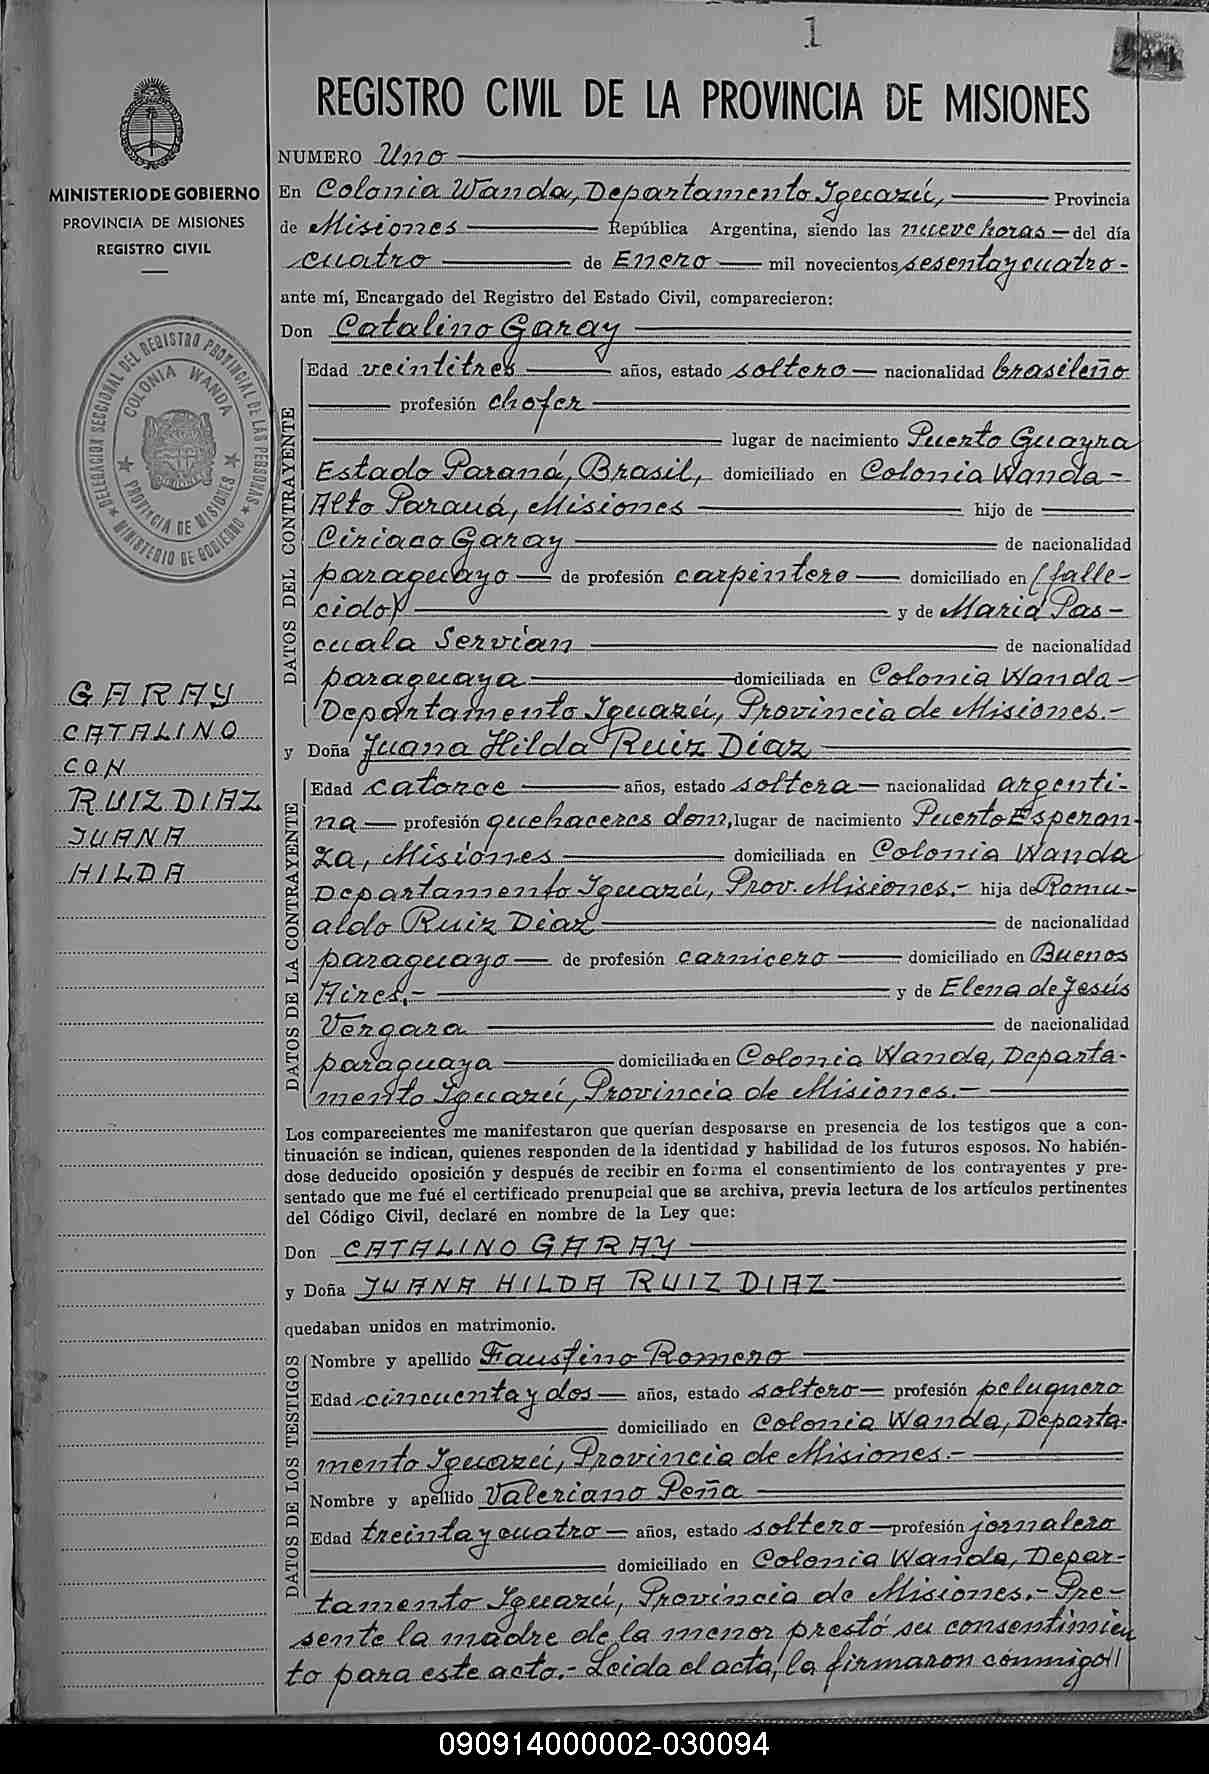 1
REGISTRO CIVIL DE LA PROVINCIA DE MISIONES
MINISTERIO DE GOBIERNO
PROVINCIA DE MISIONES
REGISTRO CIVIL
DELEGACION SECCIONAL DEL REGISTRO PROVINCIAL DE LAS PERSONAS
COLONIA WANDA
PROVINCIA DE MISIONES
MINISTERIO DE GOBIERNO
GARAY
CATALINO
CON
RUIZ DIAZ
JUANA
HILDA
NUMERO Uno
En Colonia Wanda, Departamento Iguazú, Provincia
de Misiones República Argentina, siendo las nueve horas del día
cuatro de Enero mil novecientos sesenta y cuatro
ante mí, Encargado del Registro del Estado Civil, comparecieron:
Don Catalino Garay
DATOS DEL CONTRAYENTE
Edad veintitres años, estado soltero nacionalidad brasileño
profesión chofer
lugar de nacimiento Puerto Guayra
Estado Paraná, Brasil, domiciliado en Colonia Wanda-
Alto Paraná, Misiones hijo de
Ciriaco Garay de nacionalidad
paraguayo de profesión carpintero domiciliado en (falle-
cido) y de Maria Pas-
cuala Servian de nacionalidad
paraguaya domiciliada en Colonia Wanda-
Departamento Iguazú, Provincia de Misiones.-
y Doña Juana Hilda Ruiz Diaz
DATOS DE LA CONTRAYENTE
Edad catorce años, estado soltera nacionalidad argenti-
na profesión quehaceres dom., lugar de nacimiento Puerto Esperan-
za, Misiones domiciliada en Colonia Wanda
Departamento Iguazú, Prov. Misiones.- hija de Romu-
aldo Ruiz Diaz de nacionalidad
paraguayo de profesión carnicero domiciliado en Buenos
Aires.- y de Elena de Jesús
Vergara de nacionalidad
paraguaya domiciliada en Colonia Wanda, Departa-
mento Iguazú, Provincia de Misiones.-
Los comparecientes me manifestaron que querían desposarse en presencia de los testigos que a con-
tinuación se indican, quienes responden de la identidad y habilidad de los futuros esposos. No habién-
dose deducido oposición y después de recibir en forma el consentimiento de los contrayentes y pre-
sentado que me fué el certificado prenupcial que se archiva, previa lectura de los artículos pertinentes
del Código Civil, declaré en nombre de la Ley que:
Don CATALINO GARAY
y Doña JUANA HILDA RUIZ DIAZ
quedaban unidos en matrimonio.
DATOS DE LOS TESTIGOS
Nombre y apellido Faustino Romero
Edad cincuenta y dos años, estado soltero profesión peluquero
domiciliado en Colonia Wanda, Departa-
mento Iguazú, Provincia de Misiones.-
Nombre y apellido Valeriano Peña
Edad treinta y cuatro años, estado soltero profesión jornalero
domiciliado en Colonia Wanda, Depar-
tamento Iguazú, Provincia de Misiones.- Pre-
sente la madre de la menor prestó su consentimien
to para este acto.- Leida el acta, la firmaron conmigo//
090914000002-030094